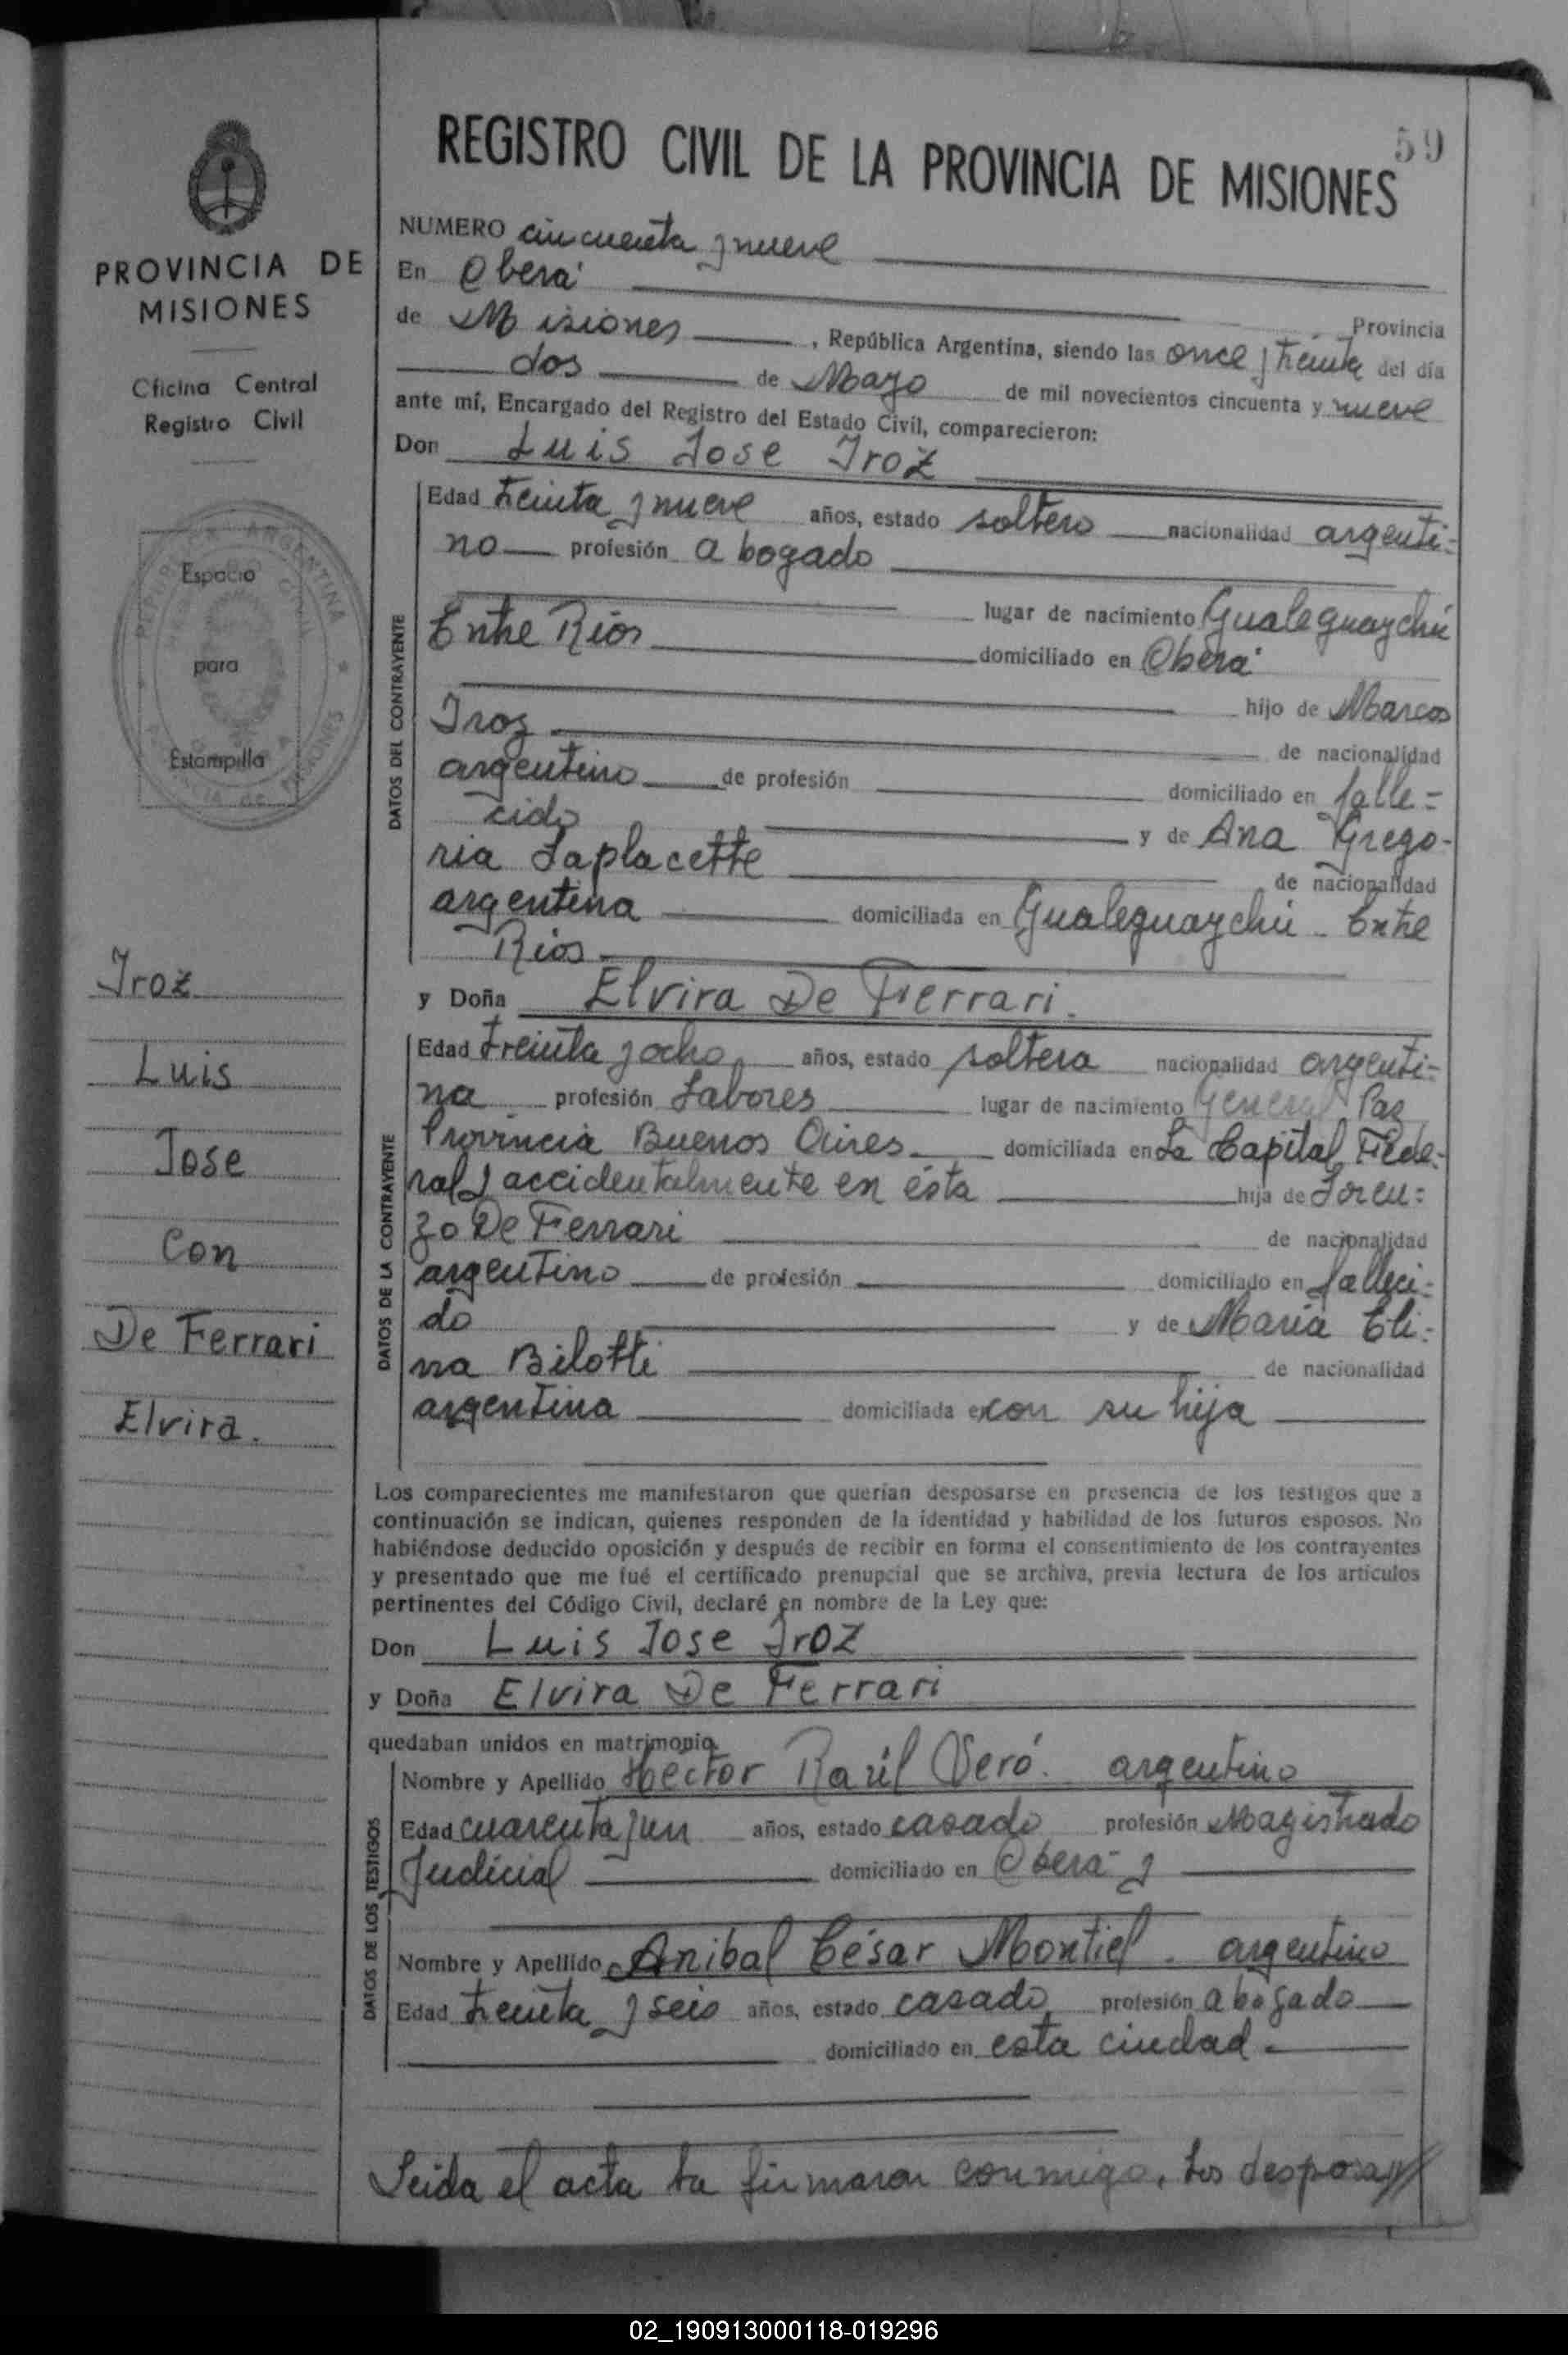 59
REGISTRO CIVIL DE LA PROVINCIA DE MISIONES
PROVINCIA DE
MISIONES
Oficina Central
Registro Civil
REPUBLICA ARGENTINA
Espacio
para
Estampilla
Iroz
Luis
Jose
Con
De Ferrari
Elvira.
NUMERO cincuenta y nueve
En Oberá
Provincia
de Misiones, República Argentina, siendo las once y treinta del día
dos de Mayo de mil novecientos cincuenta y nueve
ante mí, Encargado del Registro del Estado Civil, comparecieron:
Don Luis Jose Iroz
DATOS DEL CONTRAYENTE
Edad treinta y nueve años, estado soltero nacionalidad argenti=
no profesión abogado
lugar de nacimiento Gualeguaychú
Entre Rios domiciliado en Oberá
hijo de Marcos
Iroz de nacionalidad
argentino de profesión domiciliado en falle=
cido y de Ana Grego-
ria Laplacette de nacionalidad
argentina domiciliada en Gualeguaychú - Entre
Rios
y Doña Elvira De Ferrari.
DATOS DE LA CONTRAYENTE
Edad treinta y ocho años, estado soltera nacionalidad argenti=
na profesión Labores lugar de nacimiento General Paz
Provincia Buenos Aires domiciliada en La Capital Fede=
ral y accidentalmente en ésta hija de Loren=
zo De Ferrari de nacionalidad
argentino de profesión domiciliado en falleci=
do y de Maria Eli=
na Bilotti de nacionalidad
argentina domiciliada en con su hija
Los comparecientes me manifestaron que querían desposarse en presencia de los testigos que a
continuación se indican, quienes responden de la identidad y habilidad de los futuros esposos. No
habiéndose deducido oposición y después de recibir en forma el consentimiento de los contrayentes
y presentado que me fué el certificado prenupcial que se archiva, previa lectura de los artículos
pertinentes del Código Civil, declaré en nombre de la Ley que:
Don Luis Jose Iroz
y Doña Elvira De Ferrari
quedaban unidos en matrimonio.
DATOS DE LOS TESTIGOS
Nombre y Apellido Hector Raúl Oseró. argentino
Edad cuarenta y un años, estado casado profesión Magistrado
Judicial domiciliado en Oberá y
Nombre y Apellido Anibal César Montiel. argentino
Edad treinta y seis años, estado casado profesión abogado
domiciliado en esta ciudad.
Leida el acta la firmaron conmigo, los desposa
02_190913000118-019296